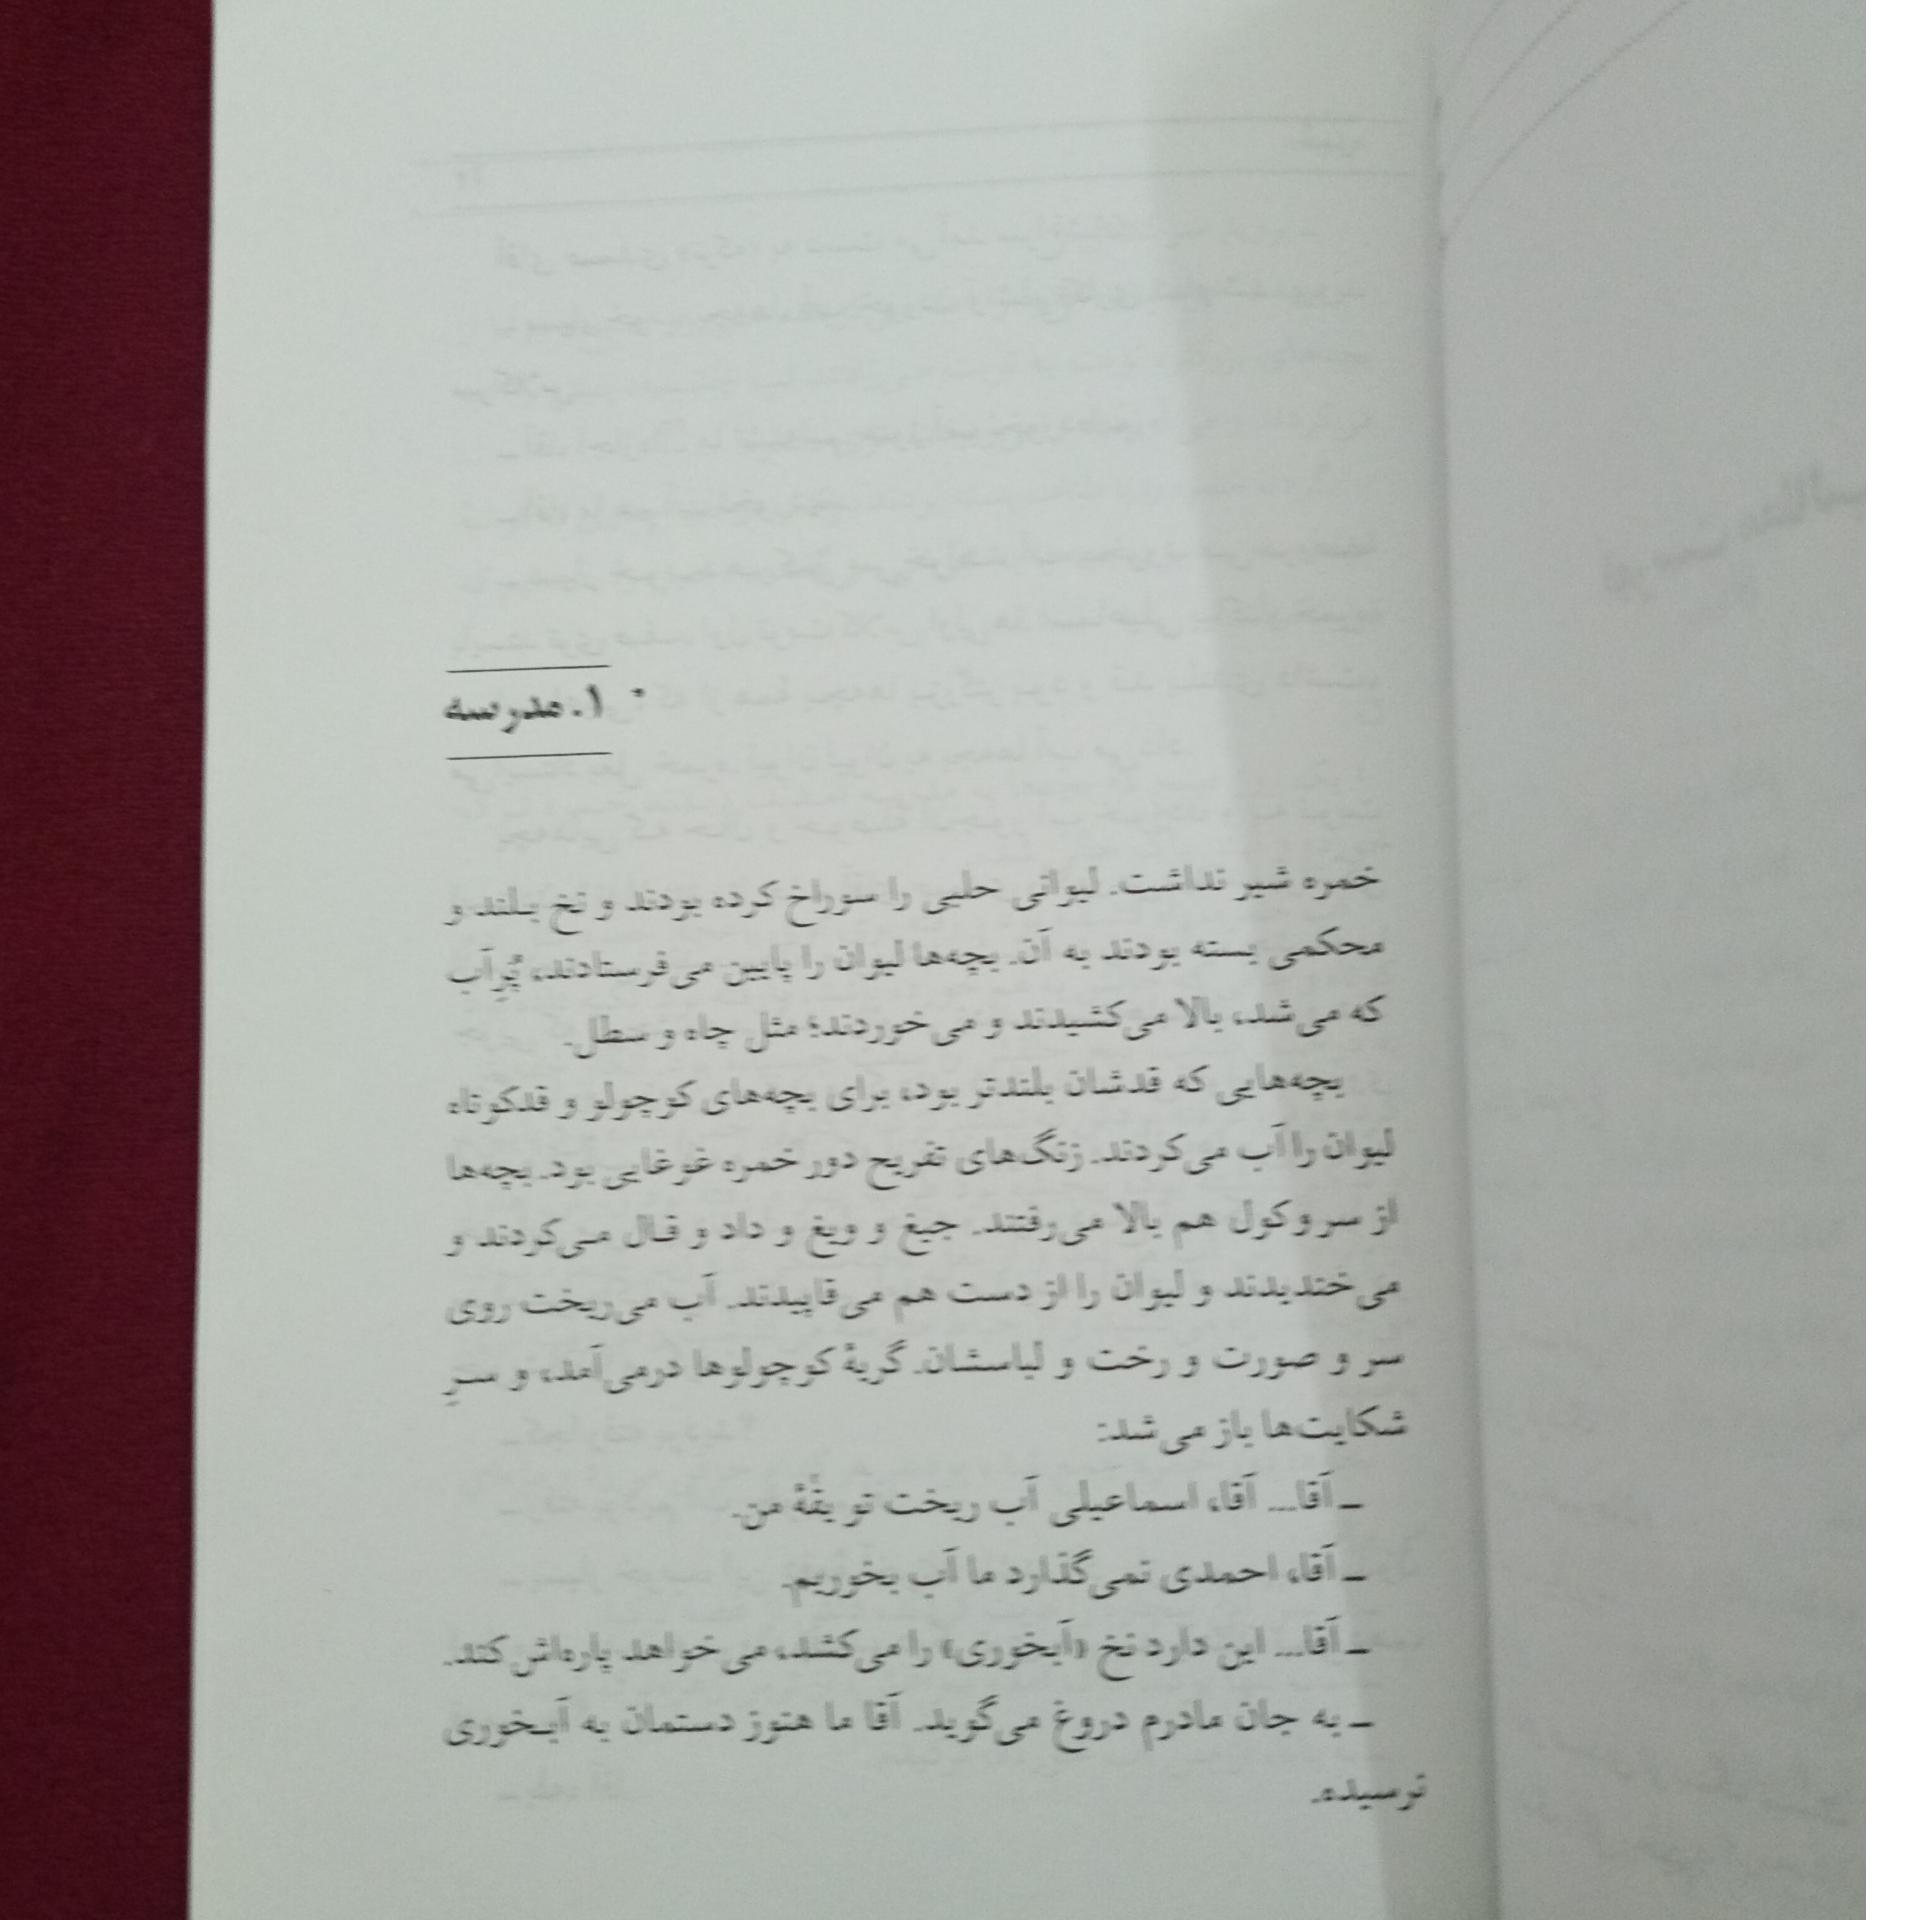 ۱. مدرسه
خمره شیر نداشت. لیوانی حلبی را سوراخ کرده بودند و نخ بلند و
محکمی بسته بودند به آن. بچه‌ها لیوان را پایین می‌فرستادند، پُرِ آب
که می‌شد، بالا می‌کشیدند و می‌خوردند؛ مثل چاه و سطل.
بچه‌هایی که قدشان بلندتر بود، برای بچه‌های کوچولو و قدکوتاه
لیوان را آب می‌کردند. زنگ‌های تفریح دور خمره غوغایی بود. بچه‌ها
از سر و کول هم بالا می‌رفتند. جیغ و ویغ و داد و قال می‌کردند و
می‌خندیدند و لیوان را از دست هم می‌قاپیدند. آب می‌ریخت روی
سر و صورت و رخت و لباسشان. گریهٔ کوچولوها درمی‌آمد، و سرِ
شکایت‌ها باز می‌شد:
ـ آقا... آقا، اسماعیلی آب ریخت تو یقهٔ من.
ـ آقا، احمدی نمی‌گذارد ما آب بخوریم.
ـ آقا... این دارد نخ «آبخوری» را می‌کشد، می‌خواهد پاره‌اش کند.
ـ به جان مادرم دروغ می‌گوید. آقا ما هنوز دستمان به آبخوری
نرسیده.